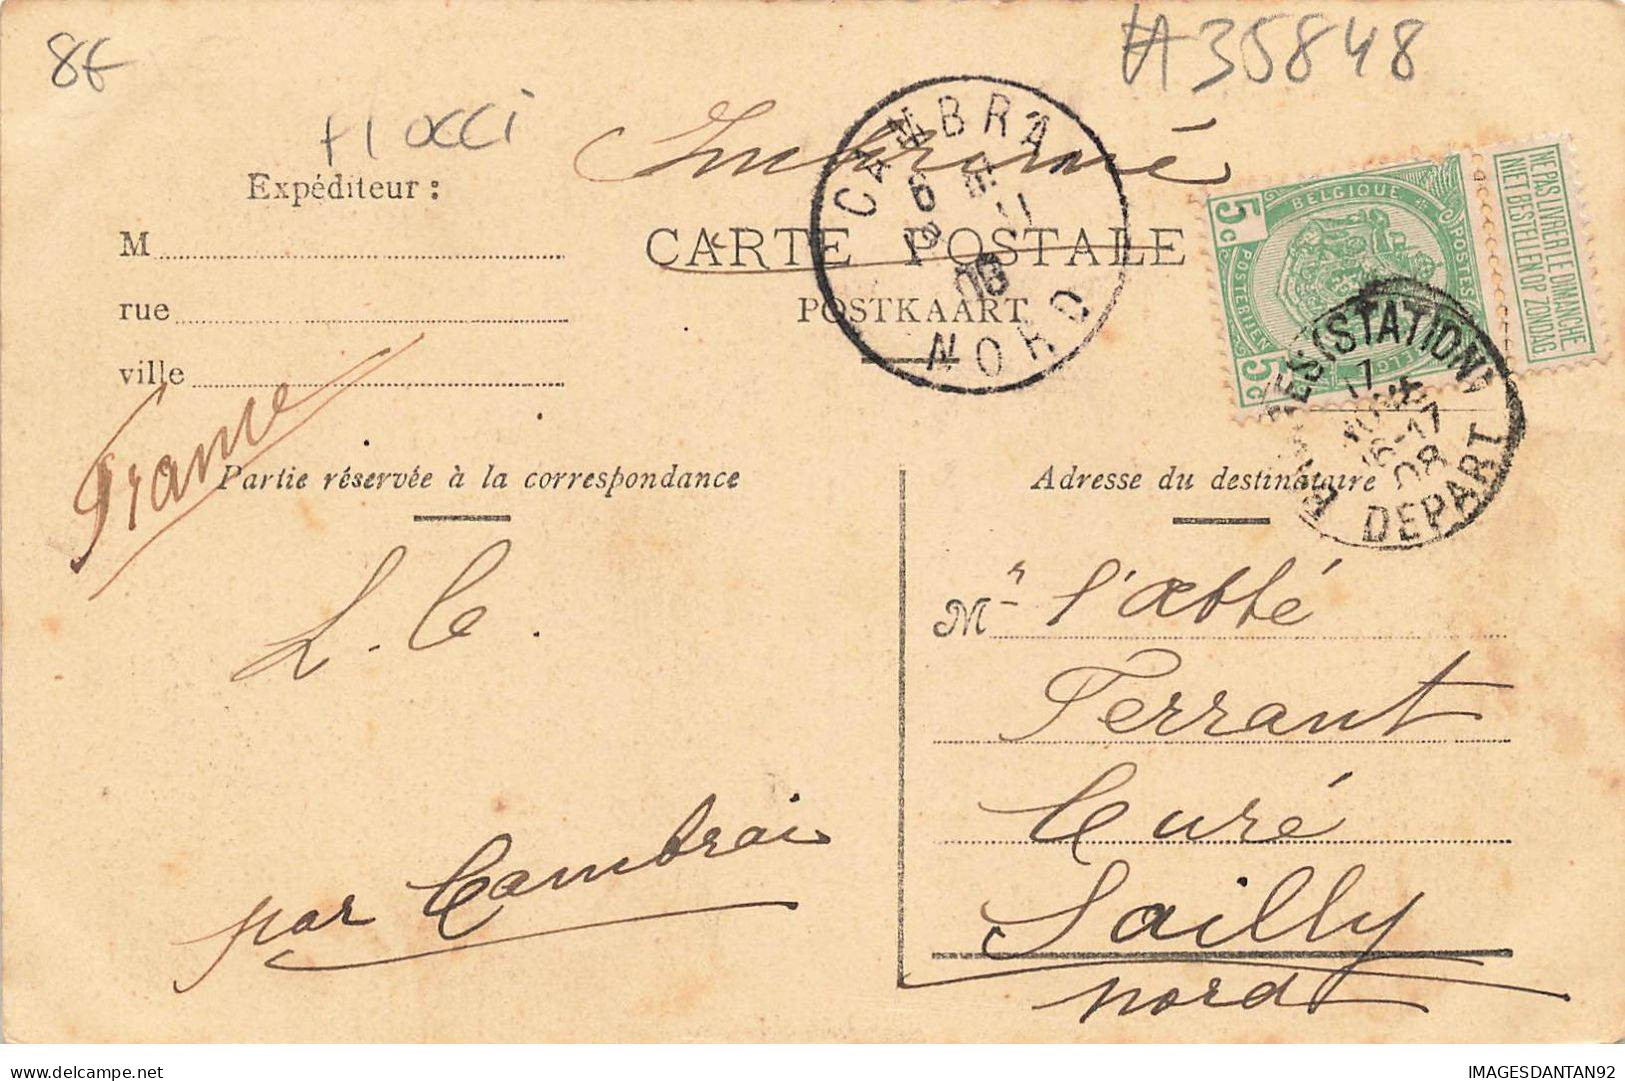 8f
A35848
Imprimé
Expéditeur :
M
rue
ville
CARTE POSTALE
POSTKAART
CAMBRAI
NORD
08
BELGIQUE
POSTES
POSTERIJEN
5c
5c
NE PAS LIVRER LE DIMANCHE
NIET BESTELLEN OP ZONDAG
(STATION)
17
16-17
08
DEPART
France
Partie réservée à la correspondance
L. C.
par Cambrai
Adresse du destinataire
Mr l'abbé
Ferrant
Curé
Sailly
Nord
IMAGESDANTAN92